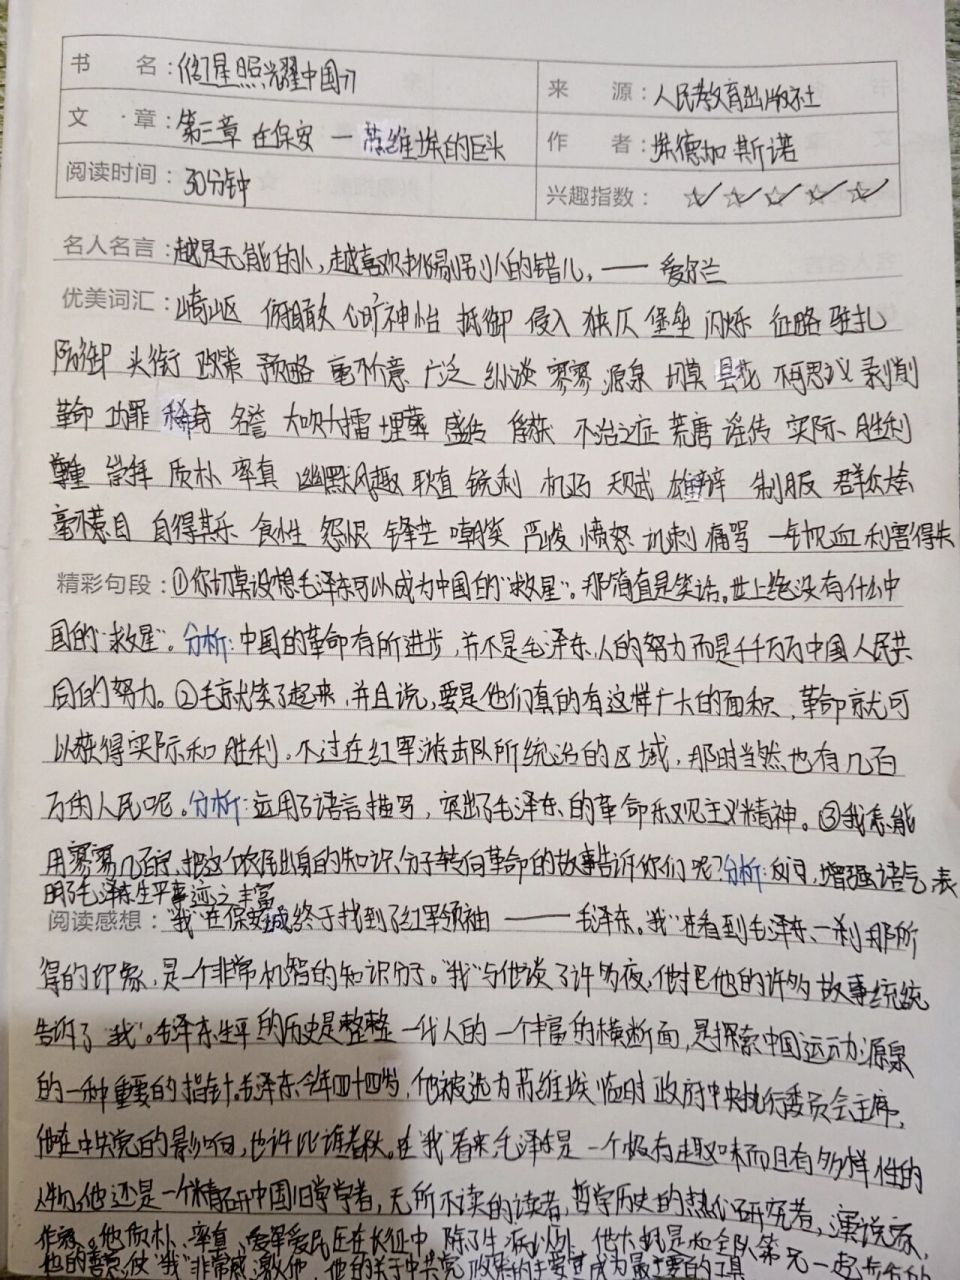 书 名：《红星照耀中国》
来 源：人民教育出版社
文 章：第三章 在保安 — 苏维埃的巨头
作 者：埃德加 斯诺
阅读时间：30分钟
兴趣指数：☆☆☆☆☆
名人名言：越是无能的人，越喜欢挑剔别人的错儿。—— 爱尔兰
优美词汇：崎岖 俯瞰 心旷神怡 抵御 侵入 狭仄 堡垒 闪烁 征略 驻扎
防御 头衔 政策 预略 毫不介意 广泛 纵谈 寥寥 源泉 切莫 昙花 不可思议 剥削
革命 功罪 稀奇 名誉 大吹大擂 埋葬 盛传 俘获 不治之症 荒唐 谣传 实际 胜利
尊重 崇拜 质朴 率真 幽默风趣 耿直 锐利 机巧 天赋 雄辩 制服 群众大会
毫不费目 自得其乐 食性 怨恨 锋芒 嘲笑 严峻 愤怒 讥刺 痛骂 一针见血 利害得失
精彩句段：①你切莫设想毛泽东可以成为中国的“救星”。那简直是笑话。世上绝没有什么中
国的“救星”。分析：中国的革命有所进步，并不是毛泽东人的努力而是千千万万中国人民共
同的努力。②毛就笑了起来，并且说，要是他们真的有这样广大的面积，革命就可
以获得实际和胜利。不过在红军游击队所统治的区域，那时当然也有几百
万的人民呢。分析：运用了语言描写，突出了毛泽东的革命乐观主义精神。③我怎能
用寥寥几百字，把这个农民出身的知识分子转向革命的故事告诉你们呢？分析：反问，增强语气，表
明了毛泽东生平事迹之丰富
阅读感想：“我”在保安城终于找到了红军领袖——毛泽东。“我”在看到毛泽东一刹那所
得的印象，是一个非常机智的知识分子。“我”与他谈了许多夜，他把他的许多故事统统
告诉了“我”。毛泽东生平的历史是整整一代人的一个丰富的横断面，是探索中国运动源泉
的一种重要的指针。毛泽东今年四十四岁，他被选为苏维埃临时政府中央执行委员会主席，
他在中共党的影响，也许比谁都大。在“我”看来毛泽东是一个极有趣味而且有多样性的
人物，他还是一个精研中国旧学学者，无所不读的读者，哲学历史的热心研究者，演说家，
作家。他质朴、率真、爱军爱民且在长征中，除了生病以外，他大概是和全队第兄一起步行的
他的善意使“我”非常感激他，他的关于中共党政策的主要变成为最主要的工具